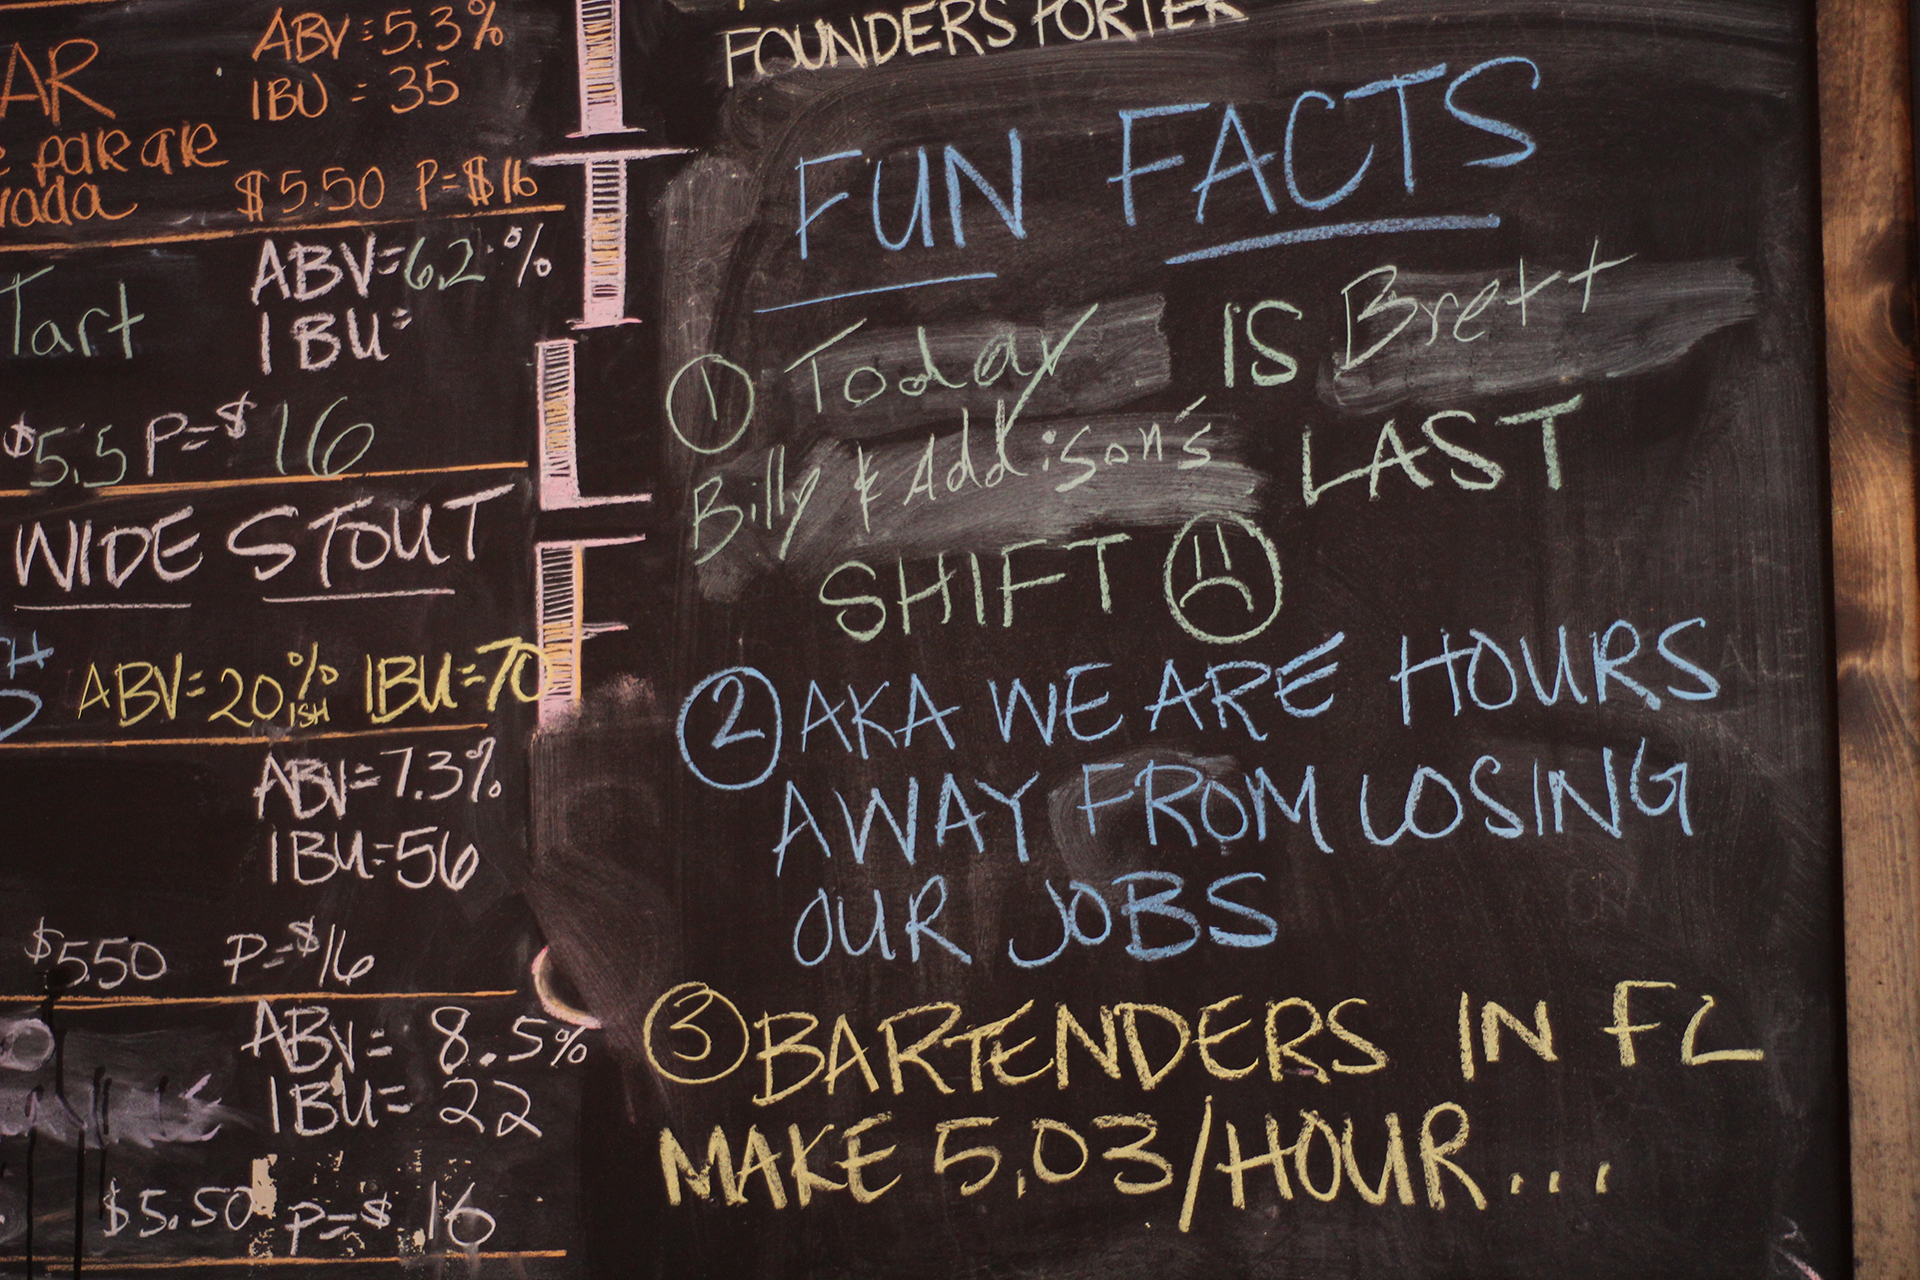 AR
ABV = 5.3%
IBU = 35
parade
$5.50 P=$16
Tart
ABV=6.2%
IBU=
$5.5 P=$16
WIDE STOUT
ABV=20% ISH IBU=70
ABV=7.3%
IBU=56
$5.50 P=$16
ABV= 8.5%
IBU= 22
$5.50 P=$16
FOUNDERS PORTER
FUN FACTS
① Today IS Brett
Billy & Addison's LAST
SHIFT
② AKA WE ARE HOURS
AWAY FROM LOSING
OUR JOBS
③ BARTENDERS IN FL
MAKE 5.03/HOUR...